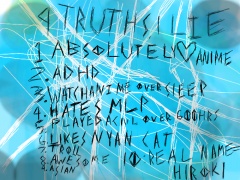 9 TRUTHS 1 LIE
1. ABSOLUTELY ♡ ANIME
2. ADHD
3. WATCH ANIME OVER SLEEP
4. HATES MLP
5. PLAYED OVER 600HRS
6. LIKES NYAN CAT
7. TROLL
8. AWESOME 10. REAL NAME:
9. ASIAN HIROKI